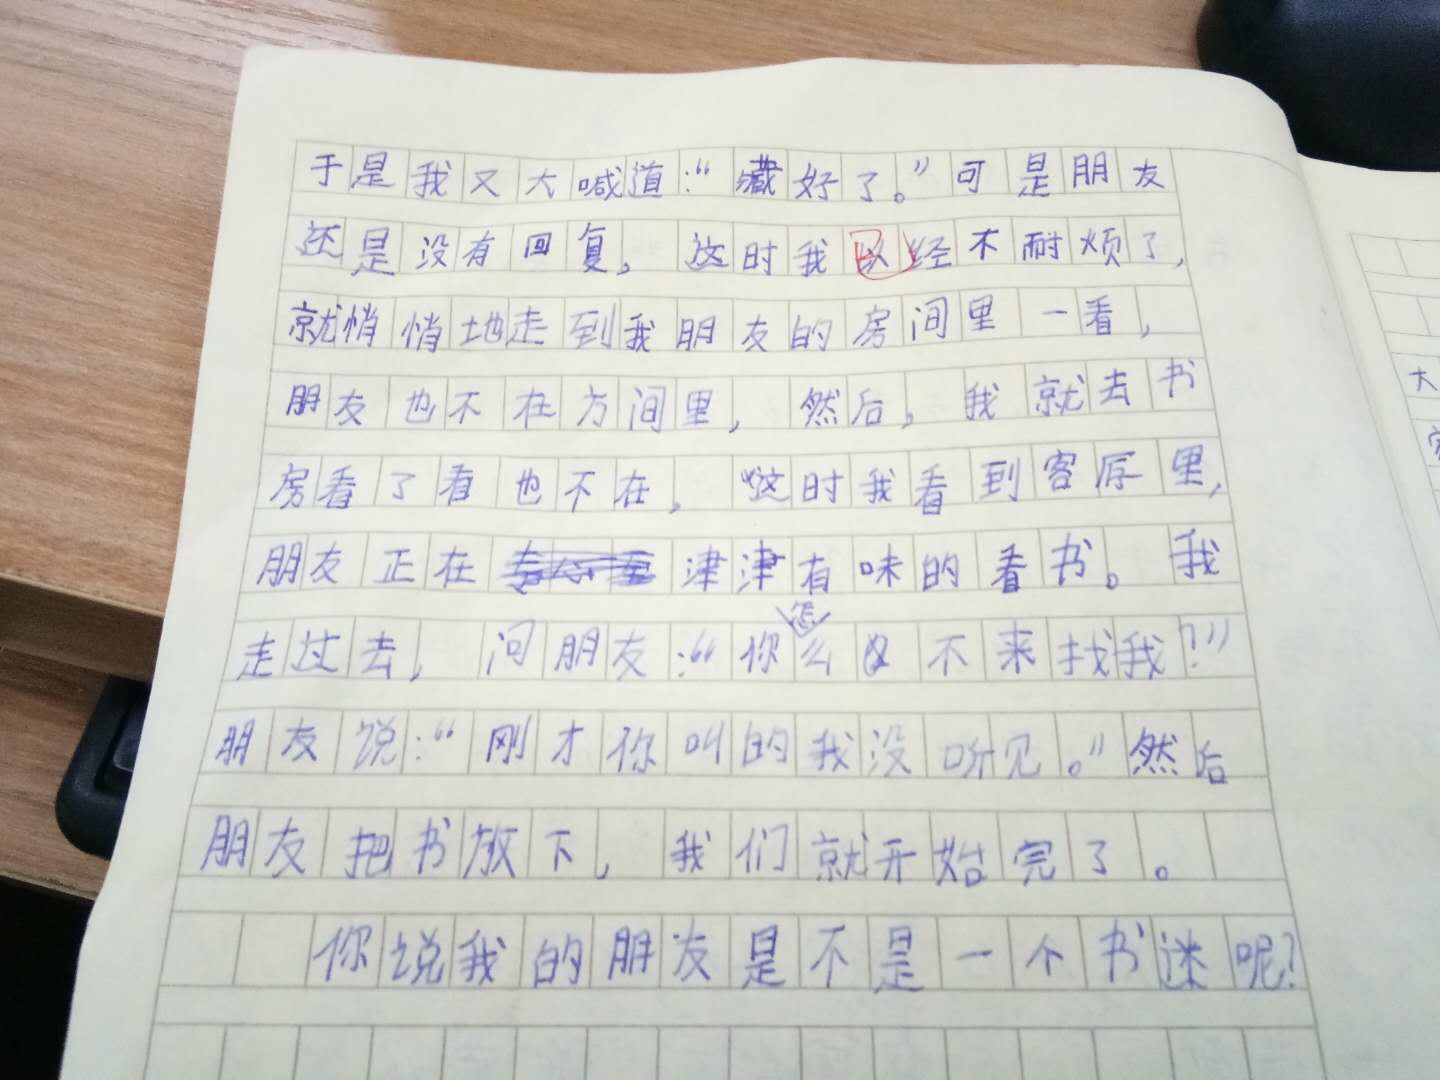 于是我又大喊道：“藏好了。”可是朋友
还是没有回复，这时我以经不耐烦了，
就悄悄地走到我朋友的房间里一看，
朋友也不在方间里，然后，我就去书
房看了看也不在，这时我看到客厅里，
朋友正在津津有味的看书。我
走过去，问朋友：“你怎么不来找我？”
朋友说：“刚才你叫的我没听见。”然后
朋友把书放下，我们就开始完了。
你说我的朋友是不是一个书迷呢？
大